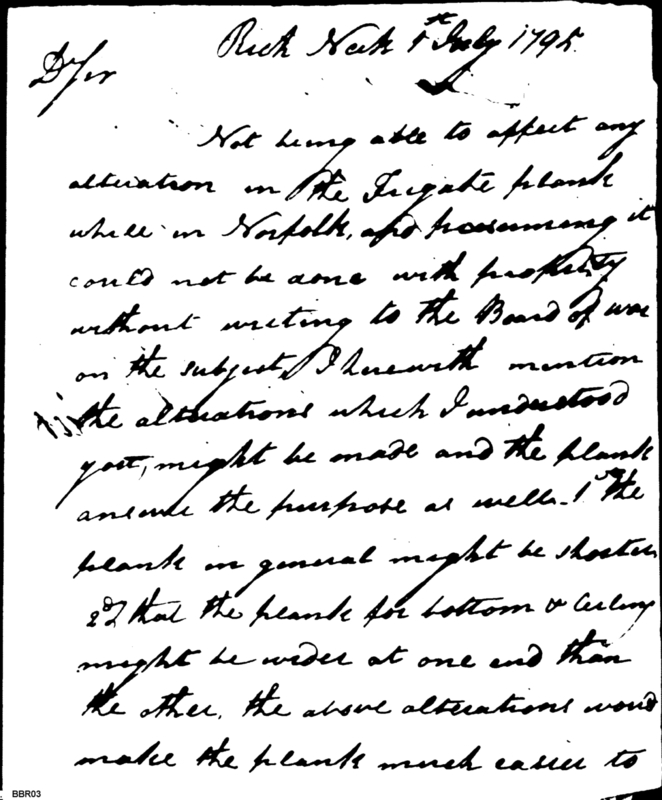 Rich Neck 1st July 1795.
Dr Sir
Not being able to affect any
alteration in the Frigate plank
while in Norfolk, and presuming it
could not be done with propriety
without writing to the Board of war
on the subject, I herewith mention
the alterations which I understood
you, might be made and the plank
answer the purpose as well - 1st the
plank in general might be shorter
2d that the plank for bottom & Ceiling
might be wider at one end than
the other. the above alterations would
make the plank much easier to
BBR03